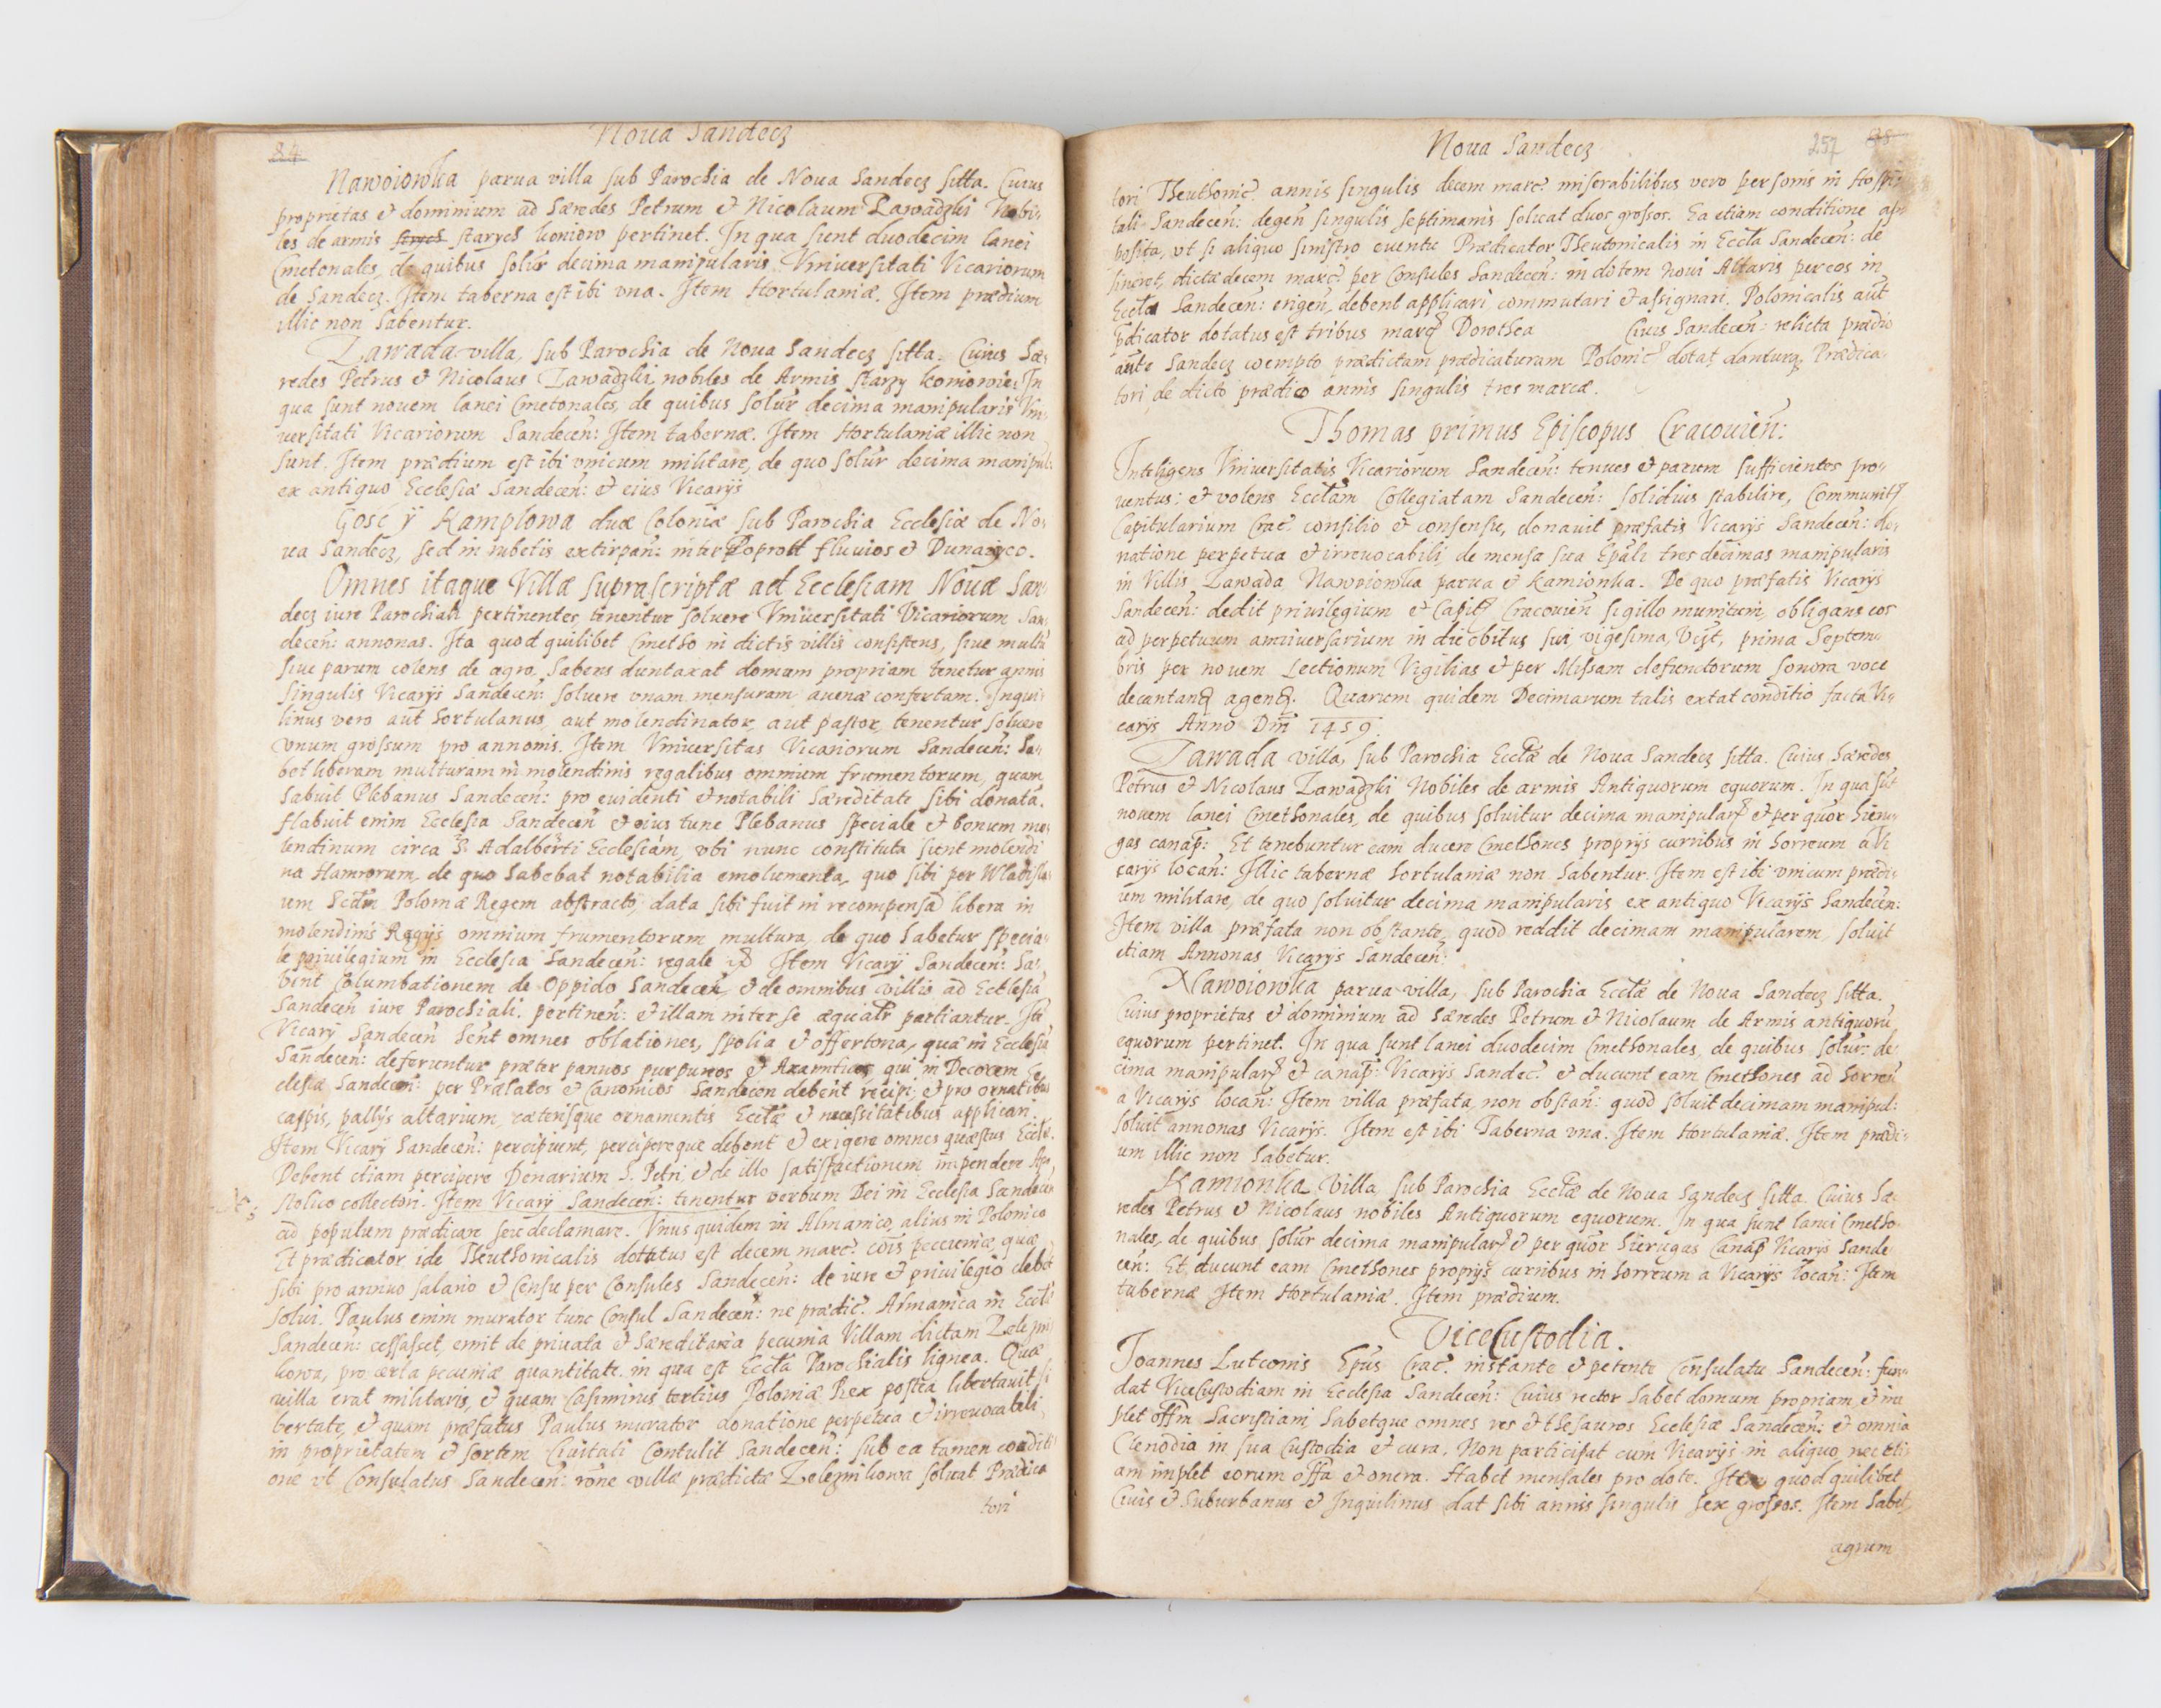 84
Noua Sandecz
Nawoiowka parua villa sub Parochia de Noua Sandecz sitta. Cuius
proprietas et dominium ad Hæredes Petrum et Nicolaum Zawadzki Nobi-
les de armis starych koniow pertinet. In qua sunt duodecim lanei
Cmetonales, de quibus solur decima manipularis Vniuersitati Vicariorum
de Sandecz. Item taberna est ibi vna. Item Hortulaniæ. Item prædium
illic non habentur.
Zawada villa, sub Parochia de Noua Sandecz sitta. Cuius hæ-
redes Petrus et Nicolaus Zawadzki, nobiles de Armis starzy koniowie. In
qua sunt nouem lanei Cmetonales, de quibus solur decima manipularis Vni-
uersitati Vicariorum Sandecen: Item tabernæ. Item Hortulaniæ illic non
sunt. Item prædium est ibi vnicum militare, de quo solur decima manipul:
ex antiquo Ecclesiæ Sandecen: et eius Vicarijs
Gosc ÿ Kamplowa duæ Coloniæ sub Parochia Ecclesiæ de No-
ua Sandecz, sed in rubetis extirpan: inter Poprott fluuios et Dunaiyec.
Omnes itaque Villæ suprascriptæ ad Ecclesiam Nouæ San-
decz iure Parochiali pertinentes, tenentur soluere Vniuersitati Vicariorum San-
decen: annonas. Ita quod quilibet Cmetho in dictis villis consistens, siue multu
siue parum colens de agro, habens duntaxat domum propriam tenetur annis
singulis Vicarijs Sandecen: soluere vnam mensuram auenæ confertam. Inqui-
linus vero aut hortulanus, aut molendinator, aut pastor, tenentur soluere
vnum grossum pro annonis. Item Vniuersitas Vicariorum Sandecen: ha-
bet liberam multuram in molendinis regalibus omnium frumentorum, quam
habuit Plebanus Sandecen: pro euidenti et notabili hæreditate sibi donata.
Habuit enim Ecclesia Sandecen et eius tunc Plebanus speciale et bonum mo-
lendinum circa S. Adalberti Ecclesiam, vbi nunc constituta sunt molendi
na Hamrorum, de quo habebat notabilia emolumenta, quo sibi per Wladisla-
um Scdm Poloniæ Regem abstracto, data sibi fuit in recompensa libera in
molendinis Regijs omnium frumentorum multura, de quo habetur specia-
le priuilegium in Ecclesia Sandecen: regale Item Vicarij Sandecen: ha-
bent Columbationem de Oppido Sandecen, et de omnibus villis ad Ecclesia
Sandecen iure Parochiali pertinen: et illam inter se æqualr partiantur. Iti
Vicarij Sandecen hent omnes oblationes, spolia et offertoria, quæ in Ecclesia
Sandecen: deferuntur præter pannos purpureos et Axamitios, qui in Decorem Ec
clesiæ Sandecen: per Prælatos et Canonicos Sandecen debent recipi, et pro ornatibus
cappis, pallijs altarium, cæterisque ornamentis Ecctæ et necessitatibus applicari.
Item Vicarij Sandecen: percipiunt, percipereque debent et exigere omnes quæstus Eccle.
Debent etiam percipere Denarium S. Petri, et de illo satisfactionem impendere Apo
stolico collectori. Item Vicarij Sandecen: tenentur verbum Dei in Ecclesia Sandecen
ad populum prædicare seu declamare. Vnus quidem in Almanico, alius in Polonico
Et prædicator ide Theuthonicalis dotatus est decem marc. cois pecuniæ, quæ
sibi pro annuo salario et Censu per Consules Sandecen: de iure et priuilegio debet
solui. Paulus enim murator tunc Consul Sandecen: ne prædic. Almanica in Eccla
Sandecen: cessasset, emit de priuata et hæreditaria pecunia Villam dictam Zelezni
kowa, pro certa pecuniæ quantitate, in qua est Eccta Parochialis lignea. Quæ
villa erat militaris, et quam Casimirus tertius Poloniæ Rex postea libertauit, li
bertate, et quam præfatus Paulus murator donatione perpetua et irreuocabili,
in proprietatem et sortem Ciuitati Contulit Sandecen: sub ea tamen conditi
one vt Consulatus Sandecen: rone villæ prædictæ Zeleznikowa soluat Prædica
tori
Noua Sandecz
257
tori Theuthonic. annis singulis decem marc. miserabilibus vero personis in Hospi-
tali Sandecen: degen singulis septimanis soluat duos grossos. Ea etiam conditione ap-
posita, vt si aliquo sinistro euentu Prædicator Theutonicalis in Eccta Sandecen: de
sineret, dicta decem marc. per Consules Sandecen: in dotem noui Altaris per eos in
Eccta Sandecen: erigen, debent applicari, commutari et assignari. Polonicalis aut
pdicator dotatus est tribus marc Dorothea Ciuis Sandecen: relicta prædio
ante Sandecz coempto prædictam prædicaturam Polonic dotat danturq Prædica-
tori, de dicto prædio annis singulis tres marcæ.
Thomas primus Episcopus Cracouien:
Inteligens Vniuersitatis Vicariorum Sandecen: tenues et parum sufficientes pro-
uentus; et volens Ecctam Collegiatam Sandecen: solidius stabilire, Communi
Capitularium Crac. consilio et consensu, donauit præfatis Vicarijs Sandecen: do-
natione perpetua et irreuocabili, de mensa sua Epali tres decimas manipularis
in Villis Zawada Nawoiowka parua et Kamionka. De quo præfatis Vicarijs
Sandecen: dedit priuilegium et Capit Cracouien sigillo munitum, obligans eos
ad perpetuum anniuersarium in die obitus sui vigesima, Vizt, prima Septem-
bris per nouem Lectionum Vigilias et per Missam defunctorum sonora voce
decantan agen. Quarum quidem Decimarum talis extat conditio facta Vi-
carijs Anno Dni 1459.
Zawada villa, sub Parochia Ecctæ de Noua Sandecz sitta. Cuius hæredes
Petrus et Nicolaus Zawadzki Nobiles de armis Antiquorum equorum. In qua sut
nouem lanei Cmethonales, de quibus soluitur decima manipular et per quor hieru-
gas canap: Et tenebuntur eam ducere Cmethones proprijs curribus in horreum a Vi
carijs locan: Illic tabernæ hortulaniæ non habentur. Item est ibi vnicum prædi-
um militare, de quo soluitur decima manipularis ex antiquo Vicarijs Sandecen:
Item villa præfata non obstante, quod reddit decimam manipularem, soluit
etiam Annonas Vicarijs Sandecen:
Nawoiowka parua villa, sub Parochia Ecctæ de Noua Sandecz sitta.
Cuius proprietas et dominium ad hæredes Petrum et Nicolaum de Armis antiquoru
equorum pertinet. In qua sunt lanei duodecim Cmethonales, de quibus solur de-
cima manipular et canap: Vicarijs Sandec. et ducunt eam Cmethones ad horreu
a Vicarijs locan: Item villa præfata, non obstan: quod soluit decimam manipul:
soluit annonas Vicarijs. Item est ibi Taberna vna. Item Hortulaniæ. Item prædi-
um illic non habetur.
Kamionka Villa, sub Parochia Ecctæ de Noua Sandecz sitta. Cuius hæ-
redes Petrus et Nicolaus nobiles Antiquorum equorum. In qua sunt lanei Cmetho-
nales, de quibus solur decima manipular et per quor hierugas Canap Vicarijs Sande
cen: Et ducunt eam Cmethones proprijs curribus in horreum a Vicarijs locan: Item
tabernæ Item Hortulaniæ. Item prædium.
ViceCustodia.
Joannes Lutconis Epus Crac. instante et petente Consulatu Sandecen: fun-
dat ViceCustodiam in Ecclesia Sandecen: Cuius rector habet domum propriam, et im
plet offm Sacristiani, habetque omnes res et thesauros Ecclesiæ Sandecen: et omnia
Clenodia in sua Custodia et cura. Non participat cum Vicarijs in aliquo, nec eti-
am implet eorum offa et onera. Habet mensales pro dote. Item quod quilibet
Ciuis et Suburbanus et Inquilinus dat sibi annis singulis sex grossos. Item habet
agrum